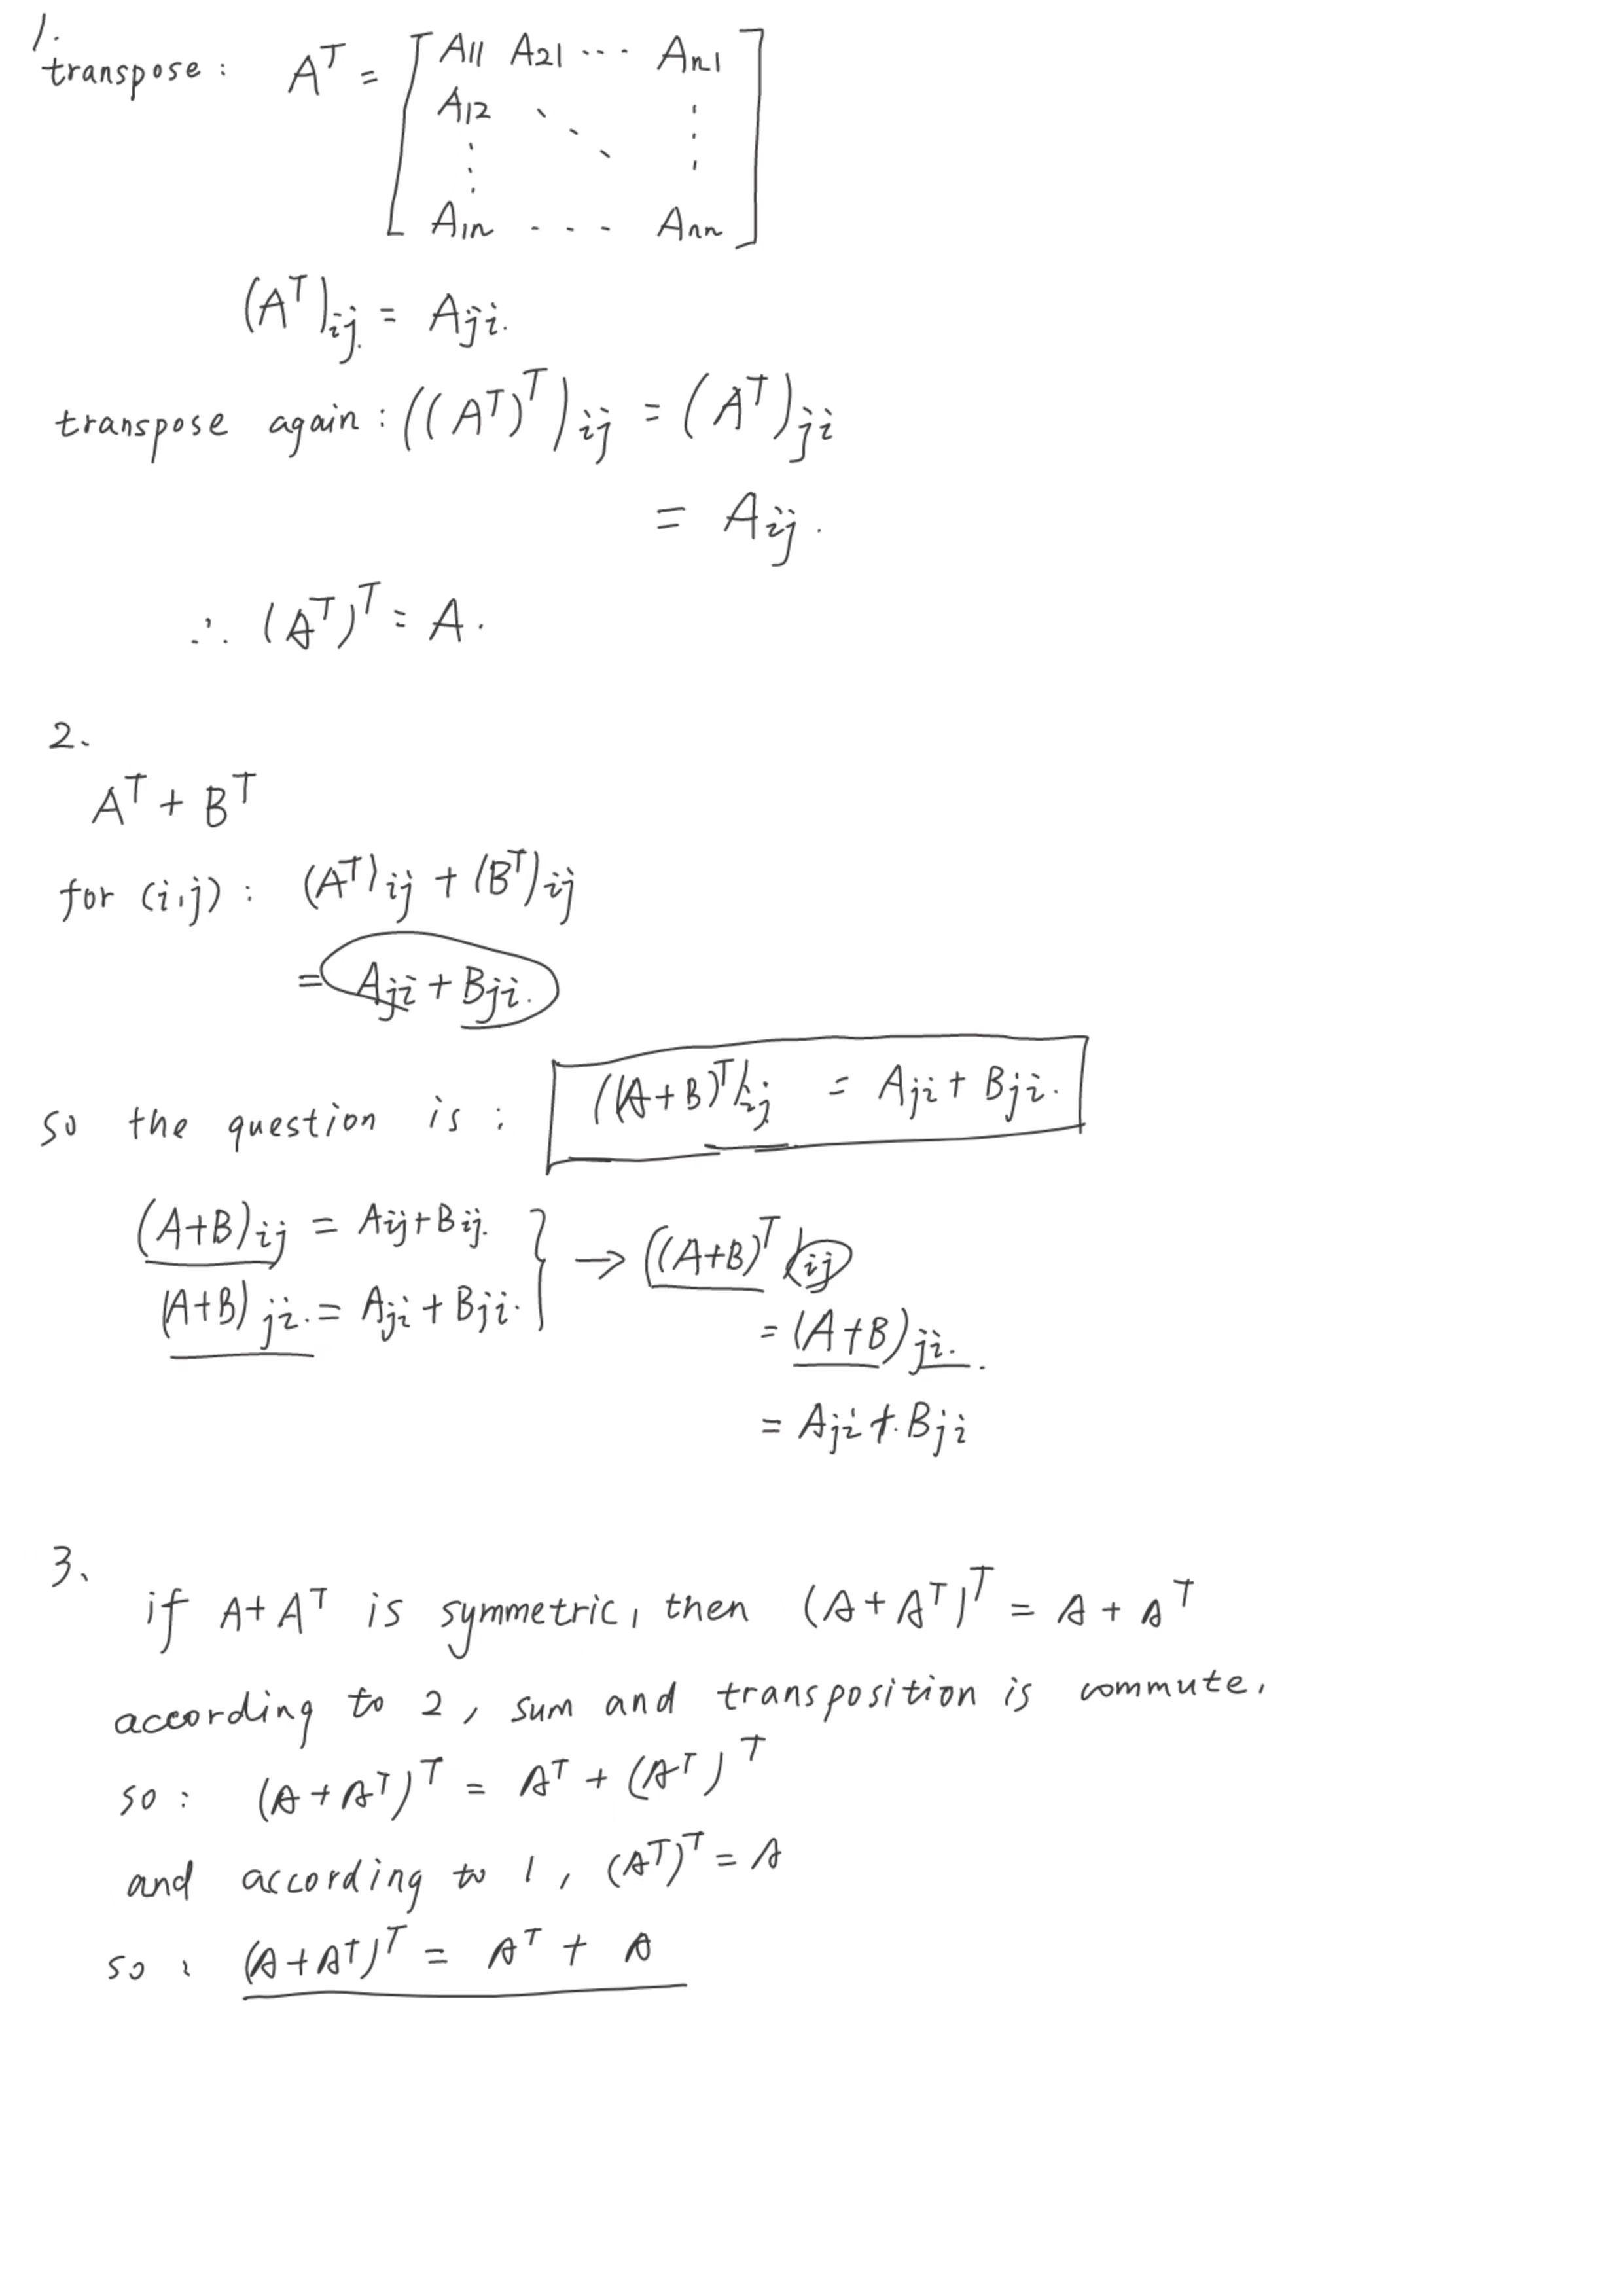 1.
transpose: A^T = [ A11 A21 ... An1
A12 ⋱ ⋮
⋮
A1n ... Ann ]
(A^T)ij = Aji.
transpose again: ((A^T)^T)ij = (A^T)ji
= Aij.
∴ (A^T)^T = A.
2、
A^T + B^T
for (i,j): (A^T)ij + (B^T)ij
= Aji + Bji.
so the question is: ((A+B)^T)ij = Aji + Bji.
(A+B)ij = Aij + Bij.
(A+B)ji. = Aji + Bji.
} → ((A+B)^T)ij
= (A+B)ji.
= Aji + Bji
3、
if A+A^T is symmetric, then (A+A^T)^T = A + A^T
according to 2, sum and transposition is commute,
so: (A+A^T)^T = A^T + (A^T)^T
and according to 1, (A^T)^T = A
so: (A+A^T)^T = A^T + A